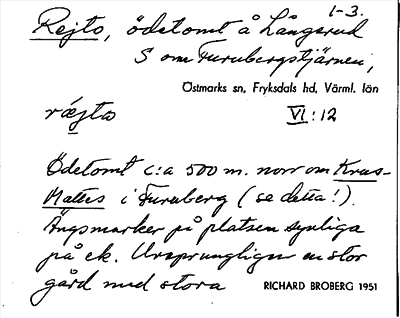 1-3.
Rejto, ödetomt å Långerud
S om Furubergstjärnen,
Östmarks sn, Fryksdals hd, Värml. län
ræjta VI:12
Ödetomt c:a 500 m. norr om Krus-
Mattes i Furuberg (se detta!).
Ängsmarker på platsen synliga
på ek. Ursprungligen en stor
gård med stora RICHARD BROBERG 1951